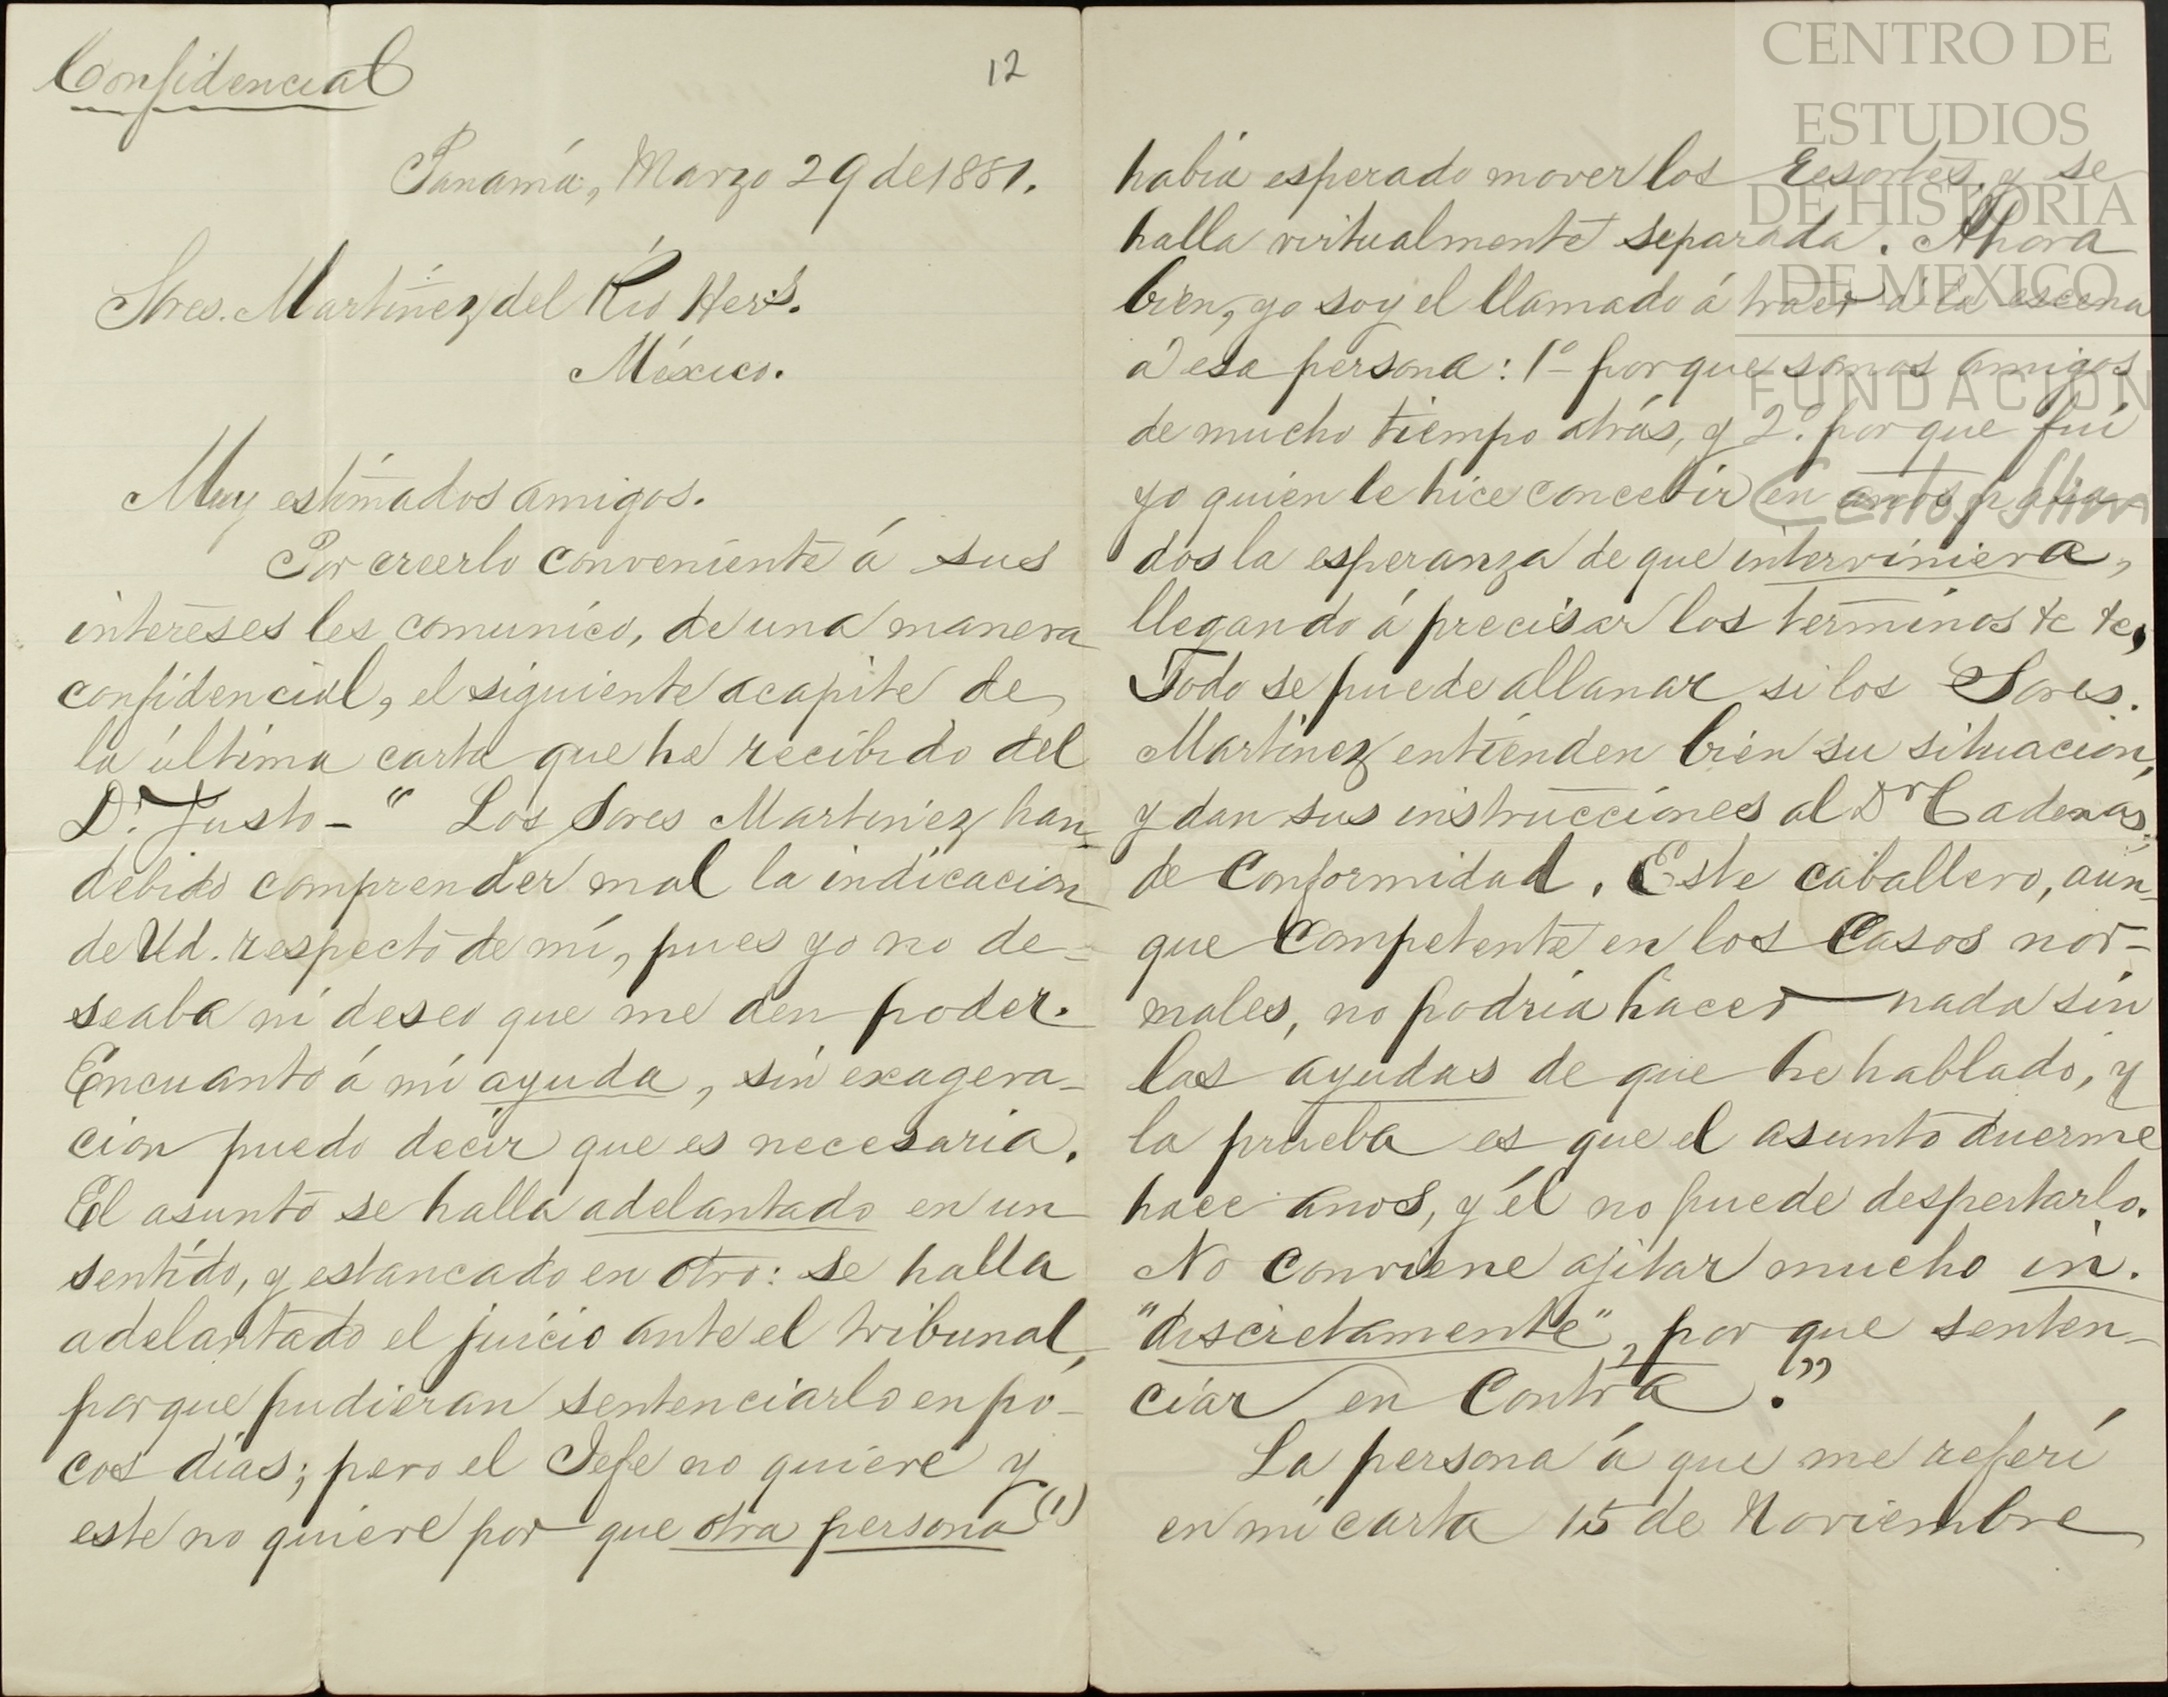 Confidencial
12
Panamá, Marzo 29 de 1881.
Sres. Martinez del Rio Her.s.
México.
Muy estimados amigos.
Por creerlo conveniente á sus
intereses les comunico, de una manera
confidencial, el siguiente acapite de
la última carta que he recibido del
Dr. Justo – " Los Sores Martinez han
debido comprender mal la indicacion
de Ud. respecto de mí, pues yo no de-
seaba ni deseo que me den poder.
Encuanto á mi ayuda, sin exagera-
cion puedo decir que es necesaria.
El asunto se halla adelantado en un
sentido, y estancado en otro: se halla
adelantado el juicio ante el tribunal,
porque pudieran sentenciarlo en po-
cos dias; pero el Jefe no quiere y
este no quiere por que otra persona (1)
había esperado mover los resortes, y se
halla virtualmente separada. Ahora
bien, yo soy el llamado á traer á la escena
á esa persona: 1º porque somos amigos
de mucho tiempo atrás, y 2º. por que fuí
yo quien le hice concebir en anos pasa-
dos la esperanza de que interviniera,
llegando á precisar los terminos &c &c,
Todo se puede allanar si los Sores.
Martinez entienden bien su situacion,
y dan sus instrucciones al Dr Cadenas,
de conformidad. Este caballero, aun-
que competente en los casos nor-
males, no podria hacer nada sin
las ayudas de que he hablado, y
la prueba es que el asunto duerme
hace anos, y él no puede despertarlo.
No conviene ajitar mucho in.
"discretamente", por que senten-
ciar en contra."
La persona á que me referí
en mi carta 15 de Noviembre
CENTRO DE
ESTUDIOS
DE HISTORIA
DE MEXICO
FUNDACION
Carlos Slim